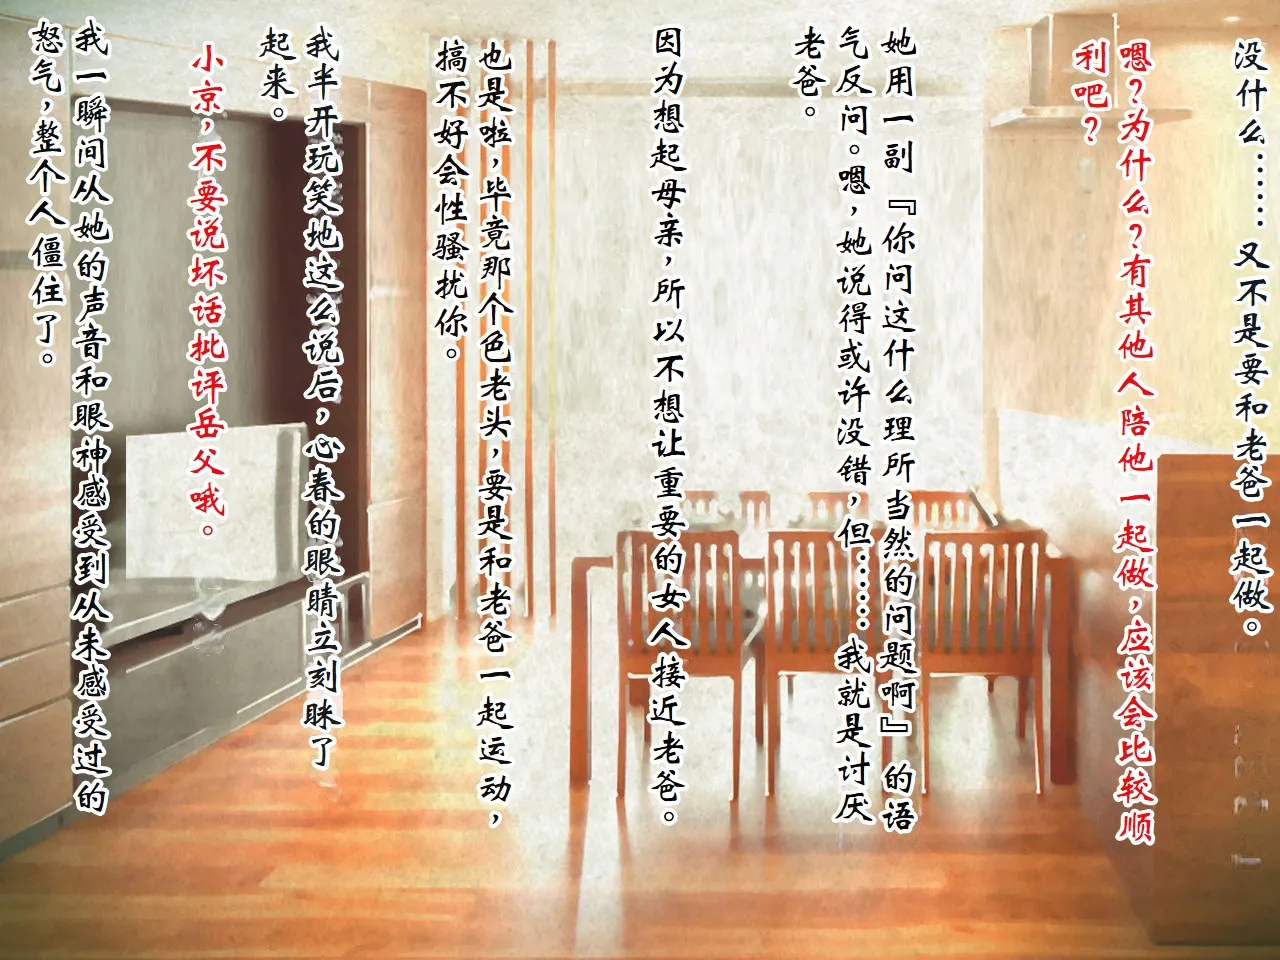 没什么……又不是要和老爸一起做。
嗯？为什么？有其他人陪他一起做，应该会比较顺
利吧？
她用一副『你问这什么理所当然的问题啊』的语
气反问。嗯，她说得或许没错，但……我就是讨厌
老爸。
因为想起母亲，所以不想让重要的女人接近老爸。
也是啦，毕竟那个色老头，要是和老爸一起运动，
搞不好会性骚扰你。
我半开玩笑地这么说后，心春的眼睛立刻眯了
起来。
小京，不要说坏话批评岳父哦。
我一瞬间从她的声音和眼神感受到从未感受过的
怒气，整个人僵住了。